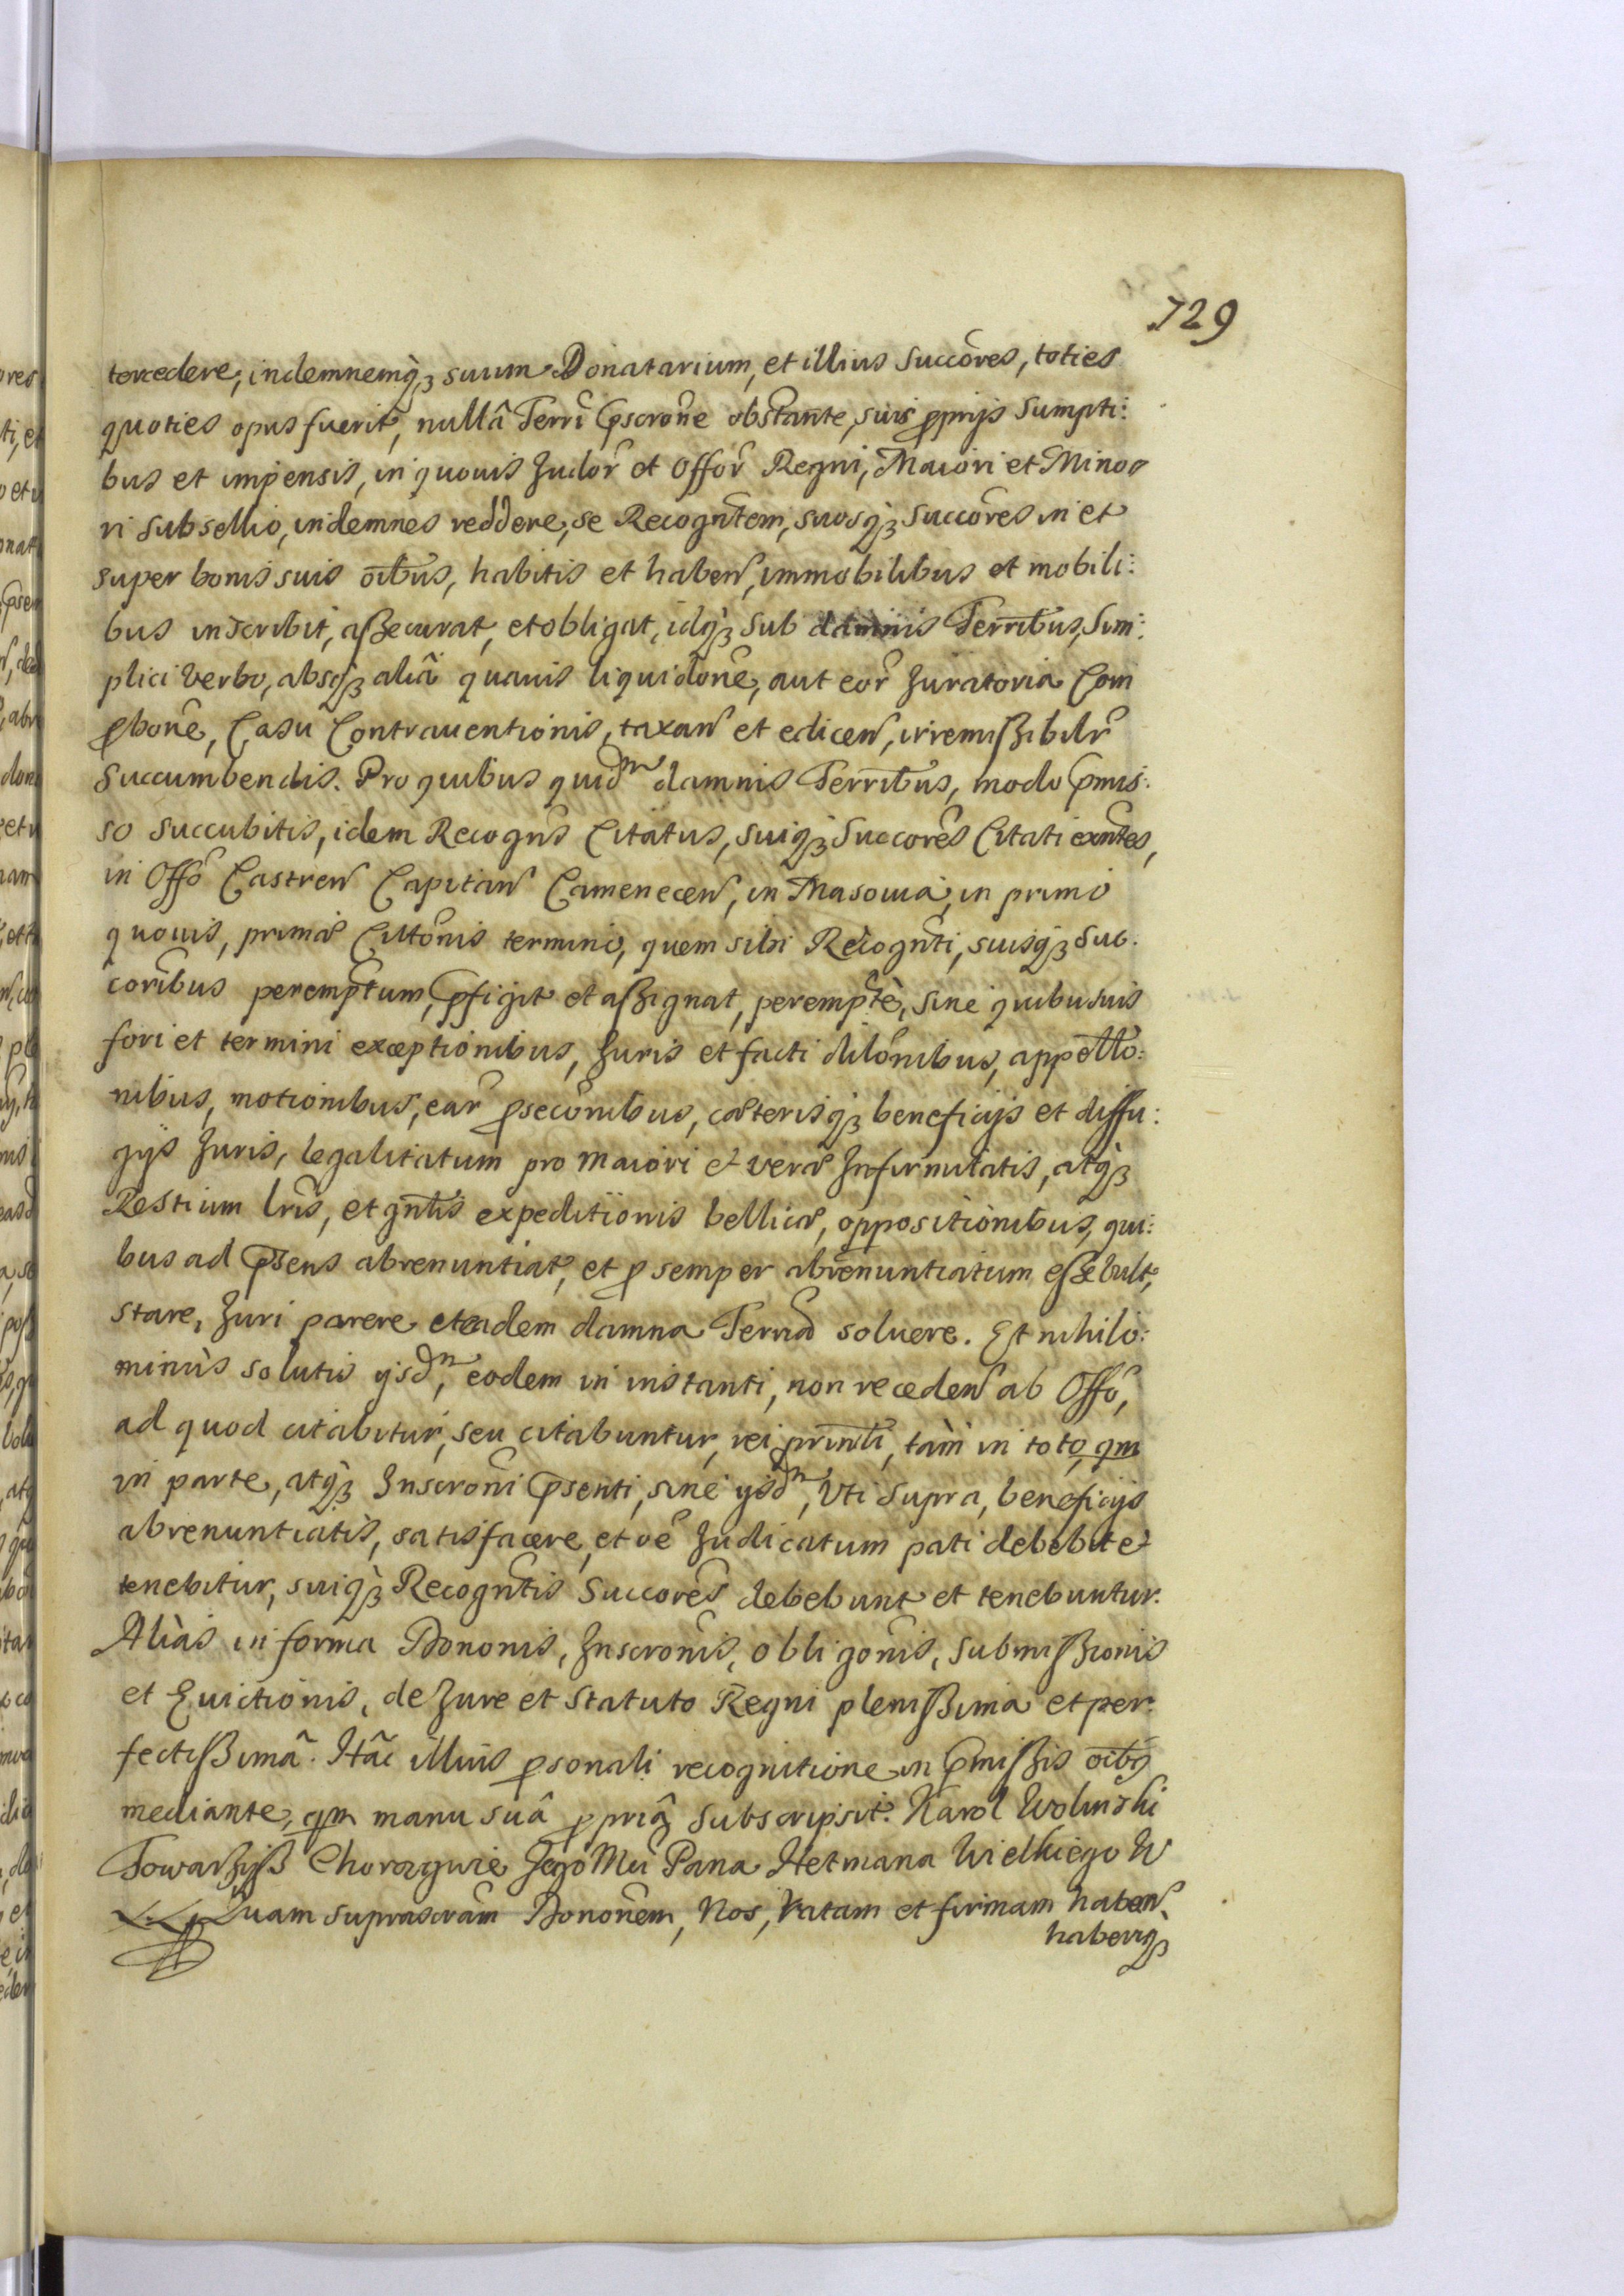 729
tercedere, indemnemq̀ꝫ suum Donatarium, et illius Succores, toties
quoties opus fuerit, nullâ Terrī Pscrone obstante, suis propriis Sumpti:
bus et impensis, in quouis Judor et Offor Regni, Maiori et Mino
ri Subsellio, indemnes reddere, se Recogntem, suosq̀ꝫ Succores in et
super bonis suis oībus, habitis et haben, immobilibus et mobili:
bus inscribit, aßecurat, et obligat, idq̀ꝫ Sub damnis Terrībus, Sim:
plici Verbo, absq̀ꝫ aliâ quauis liquidone, aut eor Juratoria Com
pbone, Casu Contrauentionis, taxan et edicen, irremißibilr
Succumbendis. Pro quibus quidm damnis Terrībus, modo pmis:
so succubitis, idem Recogns Citatus, suiq̀ꝫ Succores Citati exntes,
in Offo Castren Capitan Camenecen, in Masouia, in primo
quouis, primæ Cittonis termino, quem sibi Recognti, suisq̀ꝫ Suc:
coribus peremptum, pfigit et aßignat, peremptè, sine quibusuis
fori et termini exceptionibus, Juris et facti dilonibus, appello:
nibus, motionibus, ear psecōnibus, cæterisq̀ꝫ beneficijs et diffu:
gijs Juris, legalitatum pro maiori et veræ Infirmitatis, atq̀ꝫ
Restium lris, et gnlis expeditionis bellicæ, oppositionibus, qui:
bus ad psens abrenuntiat, et p semper abrenuntiatum eße vult,
stare, Juri parere et eadem damna Terria soluere. Et nihilo:
minùs solutis ijsdm, eodem in instanti, non receden ab Offo,
ad quod citabitur, seu citabuntur, rei prīnli, tàm in toto, qm
in parte, atq̀ꝫ Inscroni psenti, sine ijsdm, Vti Supra, beneficijs
abrenuntiatis, satisfacere, et oē Judicatum pati debebit et
tenebitur, suiq̀ꝫ Recogntis Succores debebunt et tenebuntur.
Aliàs in forma Dononis, Inscronis, obligonis, submißionis
et Euictionis, de Jure et Statuto Regni plenißima et per:
fectißimâ. Hâc illius psonali recognitione in pmißis oībꝫ
mediante, qm manu suâ ppriâ subscripsit. Karol Wolinski
Towarzyß Chorągwie Jego Mci Pana Hetmana Wielkiego W
Quam suprascram Dononem, Nos, Ratam et firmam haben,
haberiq̀ꝫ